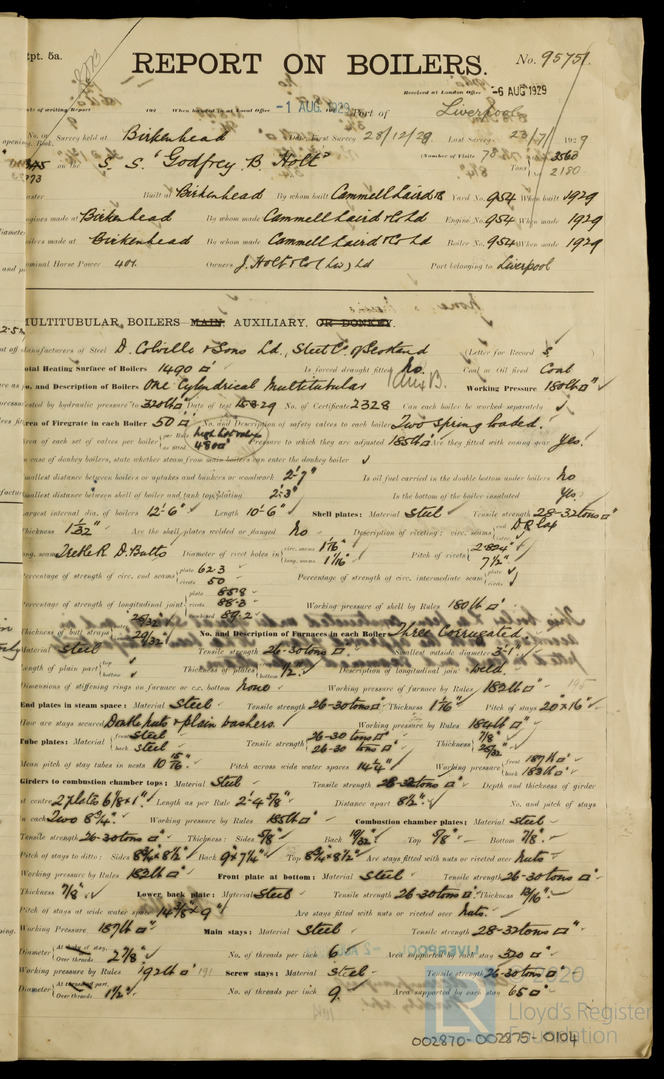 Rpt. 5a.
REPORT ON BOILERS.
No. 95751.
Received at London Office -6 AUG 1929
Date of writing Report 192 When handed in at Local Office -1 AUG. 1929 Port of Liverpool
No. in Survey held at Birkenhead First Survey 28/12/28 Last Survey 23/7/1929
on the S. S. "Godfrey B. Holt" (Number of Visits 78) Gross 3560
Tons Net 2180
Master Built at Birkenhead By whom built Cammell Laird & Co Yard No. 954 When built 1929
Engines made at Birkenhead By whom made Cammell Laird & Co Ld Engine No. 954 When made 1929
Boilers made at Birkenhead By whom made Cammell Laird & Co Ld Boiler No. 954 When made 1929
Nominal Horse Power 401. Owners J. Holt & Co (L'pool) Ld Port belonging to Liverpool
MULTITUBULAR BOILERS MAIN, AUXILIARY, OR DONKEY.
Manufacturers of Steel D. Colville & Sons Ld., Steel Co. of Scotland (Letter for Record S)
Total Heating Surface of Boilers 1490 □' Is forced draught fitted No. Coal or Oil fired Coal
No. and Description of Boilers One Cylindrical Multitubular Working Pressure 180 lb □"
Tested by hydraulic pressure to 320 lb □" Date of test 15-3-29 No. of Certificate 2328 Can each boiler be worked separately ✓
Area of Firegrate in each Boiler 50 □' No. and Description of safety valves to each boiler Two spring loaded.
Area of each set of valves per boiler per Rule as fitted 4.80 □" Pressure to which they are adjusted 185 lb □" Are they fitted with easing gear Yes.
In case of donkey boilers, state whether steam from main boilers can enter the donkey boiler ✓
Smallest distance between boilers or uptakes and bunkers or woodwork 2'-7" Is oil fuel carried in the double bottom under boilers No
Smallest distance between shell of boiler and tank top plating 2'-3" Is the bottom of the boiler insulated Yes.
Largest internal dia. of boilers 12'-6" Length 10'-6" Shell plates: Material Steel Tensile strength 28-32 tons □"
Thickness 1 1/32" Are the shell plates welded or flanged No Description of riveting: circ. seams end D R Lap
long. seams Treble R. D. Butts Diameter of rivet holes in circ. seams 1 1/16" long. seams 1 1/16" Pitch of rivets 2.804" 7 1/2"
Percentage of strength of circ. end seams plate 62.3 rivets 50 Percentage of strength of circ. intermediate seam plate ✓ rivets ✓
Percentage of strength of longitudinal joint plate 85.8 rivets 88.3 combined 89.2 Working pressure of shell by Rules 180 lb □"
Thickness of butt straps 25/32" 29/32" No. and Description of Furnaces in each Boiler Three Corrugated
Material Steel Tensile strength 26-30 tons □" Smallest outside diameter 3'-1"
Length of plain part top bottom Thickness of plates 1/2" Description of longitudinal joint Weld
Dimensions of stiffening rings on furnace or c.c. bottom None Working pressure of furnace by Rules 182 lb □" 195
End plates in steam space: Material Steel Tensile strength 26-30 tons □" Thickness 1 1/16" Pitch of stays 20" x 16"
How are stays secured Double nuts & plain washers. Working pressure by Rules 184 lb □"
Tube plates: Material front Steel back Steel Tensile strength 26-30 tons □" 26-30 tons □" Thickness 7/8" 25/32"
Mean pitch of stay tubes in nests 10 15/16" Pitch across wide water spaces 14 1/4" Working pressure front 187 lb □" back 183 lb □"
Girders to combustion chamber tops: Material Steel Tensile strength 28-32 tons □" Depth and thickness of girder
at centre 2 plates 6 7/8 x 1" Length as per Rule 2'-4 5/8" Distance apart 8 1/2" No. and pitch of stays
in each Two 8 3/4" Working pressure by Rules 185 lb □" Combustion chamber plates: Material Steel
Tensile strength 26-30 tons □" Thickness: Sides 5/8" Back 19/32" Top 5/8" Bottom 7/8"
Pitch of stays to ditto: Sides 8 3/4" x 8 1/2" Back 9" x 7 1/4" Top 8 3/4" x 8 1/2" Are stays fitted with nuts or riveted over Nuts
Working pressure by Rules 182 lb □" Front plate at bottom: Material Steel Tensile strength 26-30 tons □"
Thickness 7/8" Lower back plate: Material Steel Tensile strength 26-30 tons □" Thickness 13/16"
Pitch of stays at wide water space 14 3/8" x 9" Are stays fitted with nuts or riveted over Nuts.
Working Pressure 187 lb □" Main stays: Material Steel Tensile strength 28-32 tons □"
Diameter At body of stay, Over threads 2 7/8" No. of threads per inch 6 Area supported by each stay 320 □"
Working pressure by Rules 192 lb □" 191 Screw stays: Material Steel Tensile strength 26-30 tons □"
Diameter At turned off part, Over threads 1 1/2" No. of threads per inch 9. Area supported by each stay 65 □"
© 2020
Lloyd's Register
Foundation
002870-002875-0104